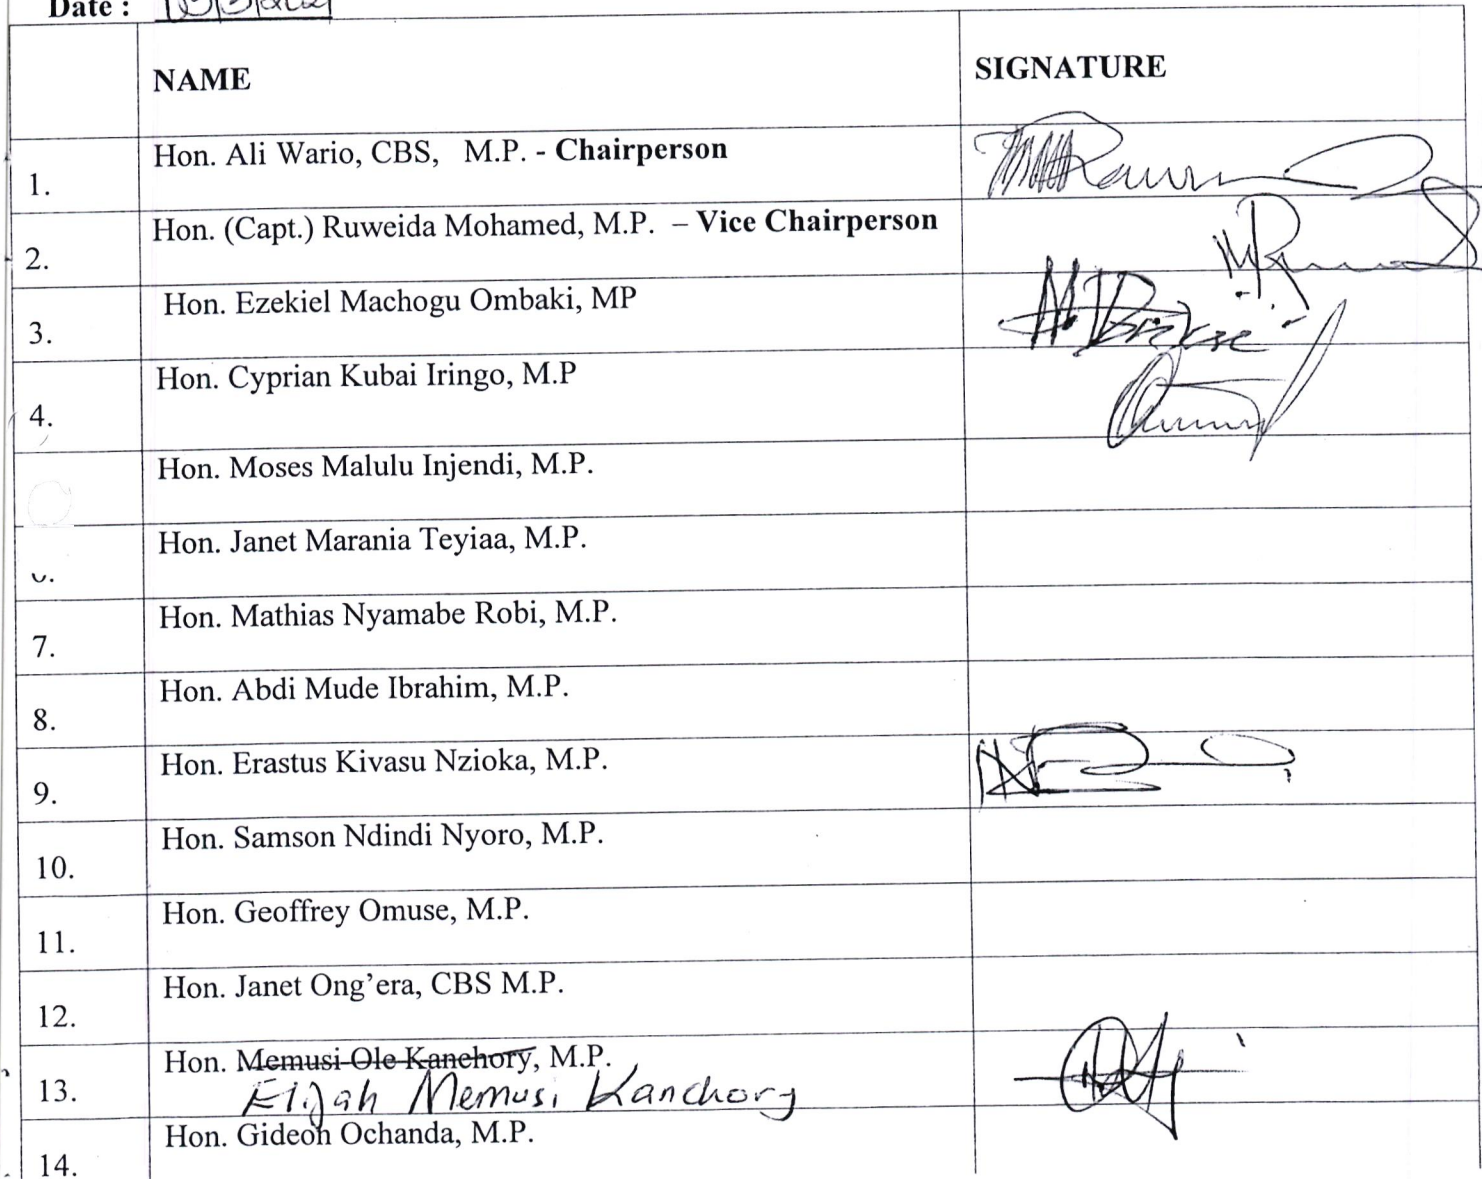 Date :
NAME SIGNATURE
Hon. Ali Wario, CBS, M.P. - Chairperson
1.
Hon. (Capt.) Ruweida Mohamed, M.P. – Vice Chairperson
2.
Hon. Ezekiel Machogu Ombaki, MP
3.
Hon. Cyprian Kubai Iringo, M.P
4.
Hon. Moses Malulu Injendi, M.P.
Hon. Janet Marania Teyiaa, M.P.
Hon. Mathias Nyamabe Robi, M.P.
7.
Hon. Abdi Mude Ibrahim, M.P.
8.
Hon. Erastus Kivasu Nzioka, M.P.
9.
Hon. Samson Ndindi Nyoro, M.P.
10.
Hon. Geoffrey Omuse, M.P.
11.
Hon. Janet Ong’era, CBS M.P.
12.
Hon. Memusi Ole Kanchory, M.P.
13. Elijah Memusi Kanchory
Hon. Gideon Ochanda, M.P.
14.